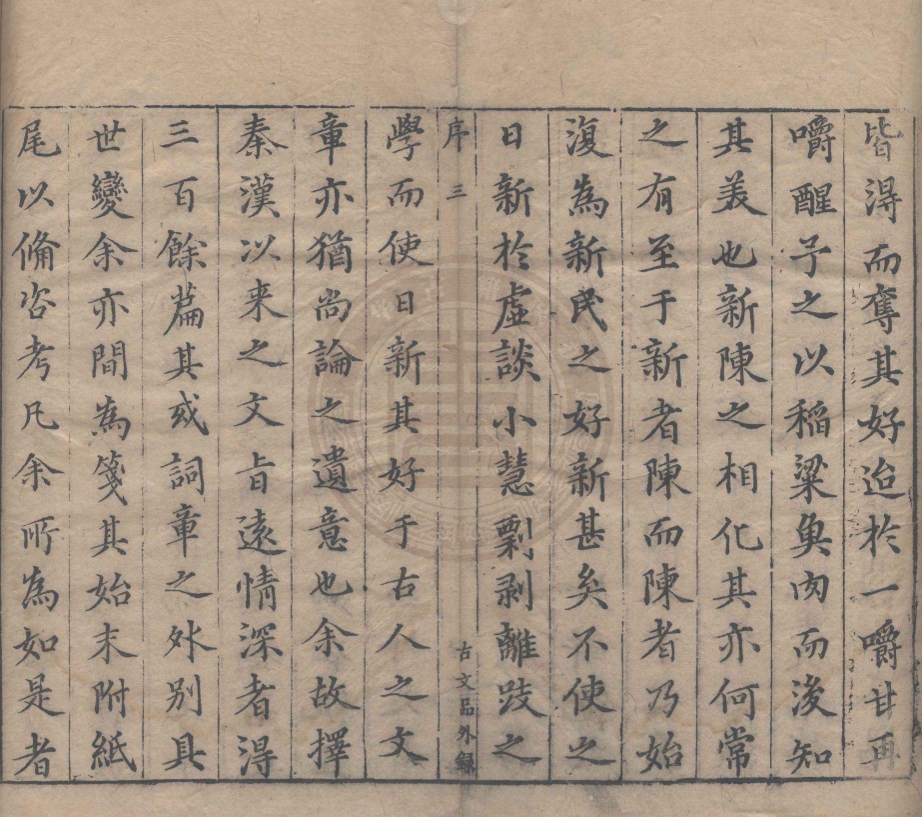 皆得而奪其好迨於一嚼甘再
嚼醒予之以稻粱魚肉而後知
其美也新陳之相化其亦何常
之有至于新者陳而陳者乃始
復為新民之好新甚矣不使之
日新於虛談小慧剽剥離跂之
序 三 古文品外録
學而使日新其好于古人之文
章亦猶尚論之遺意也余故擇
秦漢以来之文旨遠情深者得
三百餘篇其或詞章之外别具
世變余亦間為箋其始末附紙
尾以偹咨考凡余所為如是者